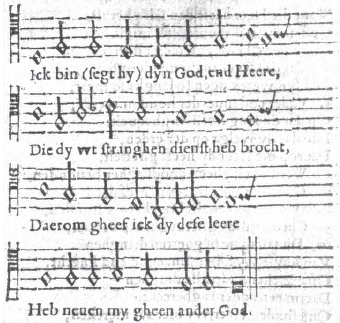 Ick bin (segt hy) dyn God, end Heere,
Die dy wt stranghen dienst heb brocht,
Daerom gheef ick dy dese leere
Heb neuen my gheen ander God.